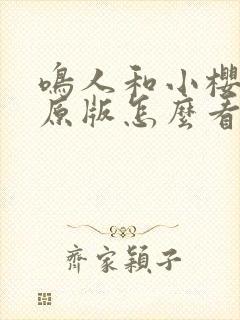 鳴人和小櫻
原版怎麼看
齊家穎子